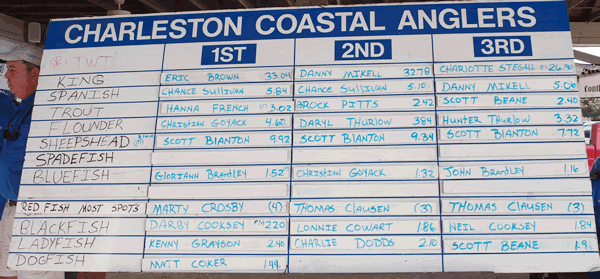 CHARLESTON COASTAL ANGLERS
TWT 1ST 2ND 3RD
KING ERIC BROWN 33.04 DANNY MIKELL 32.78 CHARLOTTE STEGALL 26.90
SPANISH CHANCE SULLIVAN 5.84 CHANCE SULLIVAN 5.10 DANNY MIKELL 5.06
TROUT HANNA FRENCH 3.02 BROCK PITTS 2.42 SCOTT BEANE 2.40
FLOUNDER CHRISTIAN GOYACK 4.60 DARYL THURLOW 3.84 HUNTER THURLOW 3.32
SHEEPSHEAD SCOTT BLANTON 9.92 SCOTT BLANTON 9.34 SCOTT BLANTON 7.72
SPADEFISH
BLUEFISH GLORIANN BRANTLEY 1.52 CHRISTIAN GOYACK 1.32 JOHN BRANTLEY 1.16
RED FISH MOST SPOTS MARTY CROSBY (4) THOMAS CLAUSEN (3) THOMAS CLAUSEN (3)
BLACKFISH DARBY COOKSEY 2.20 LONNIE COWART 1.86 NEIL COOKSEY 1.84
LADYFISH KENNY GRAYSON 2.40 CHARLIE DODDS 2.10 SCOTT BEANE
DOGFISH MATT COKER 1.44